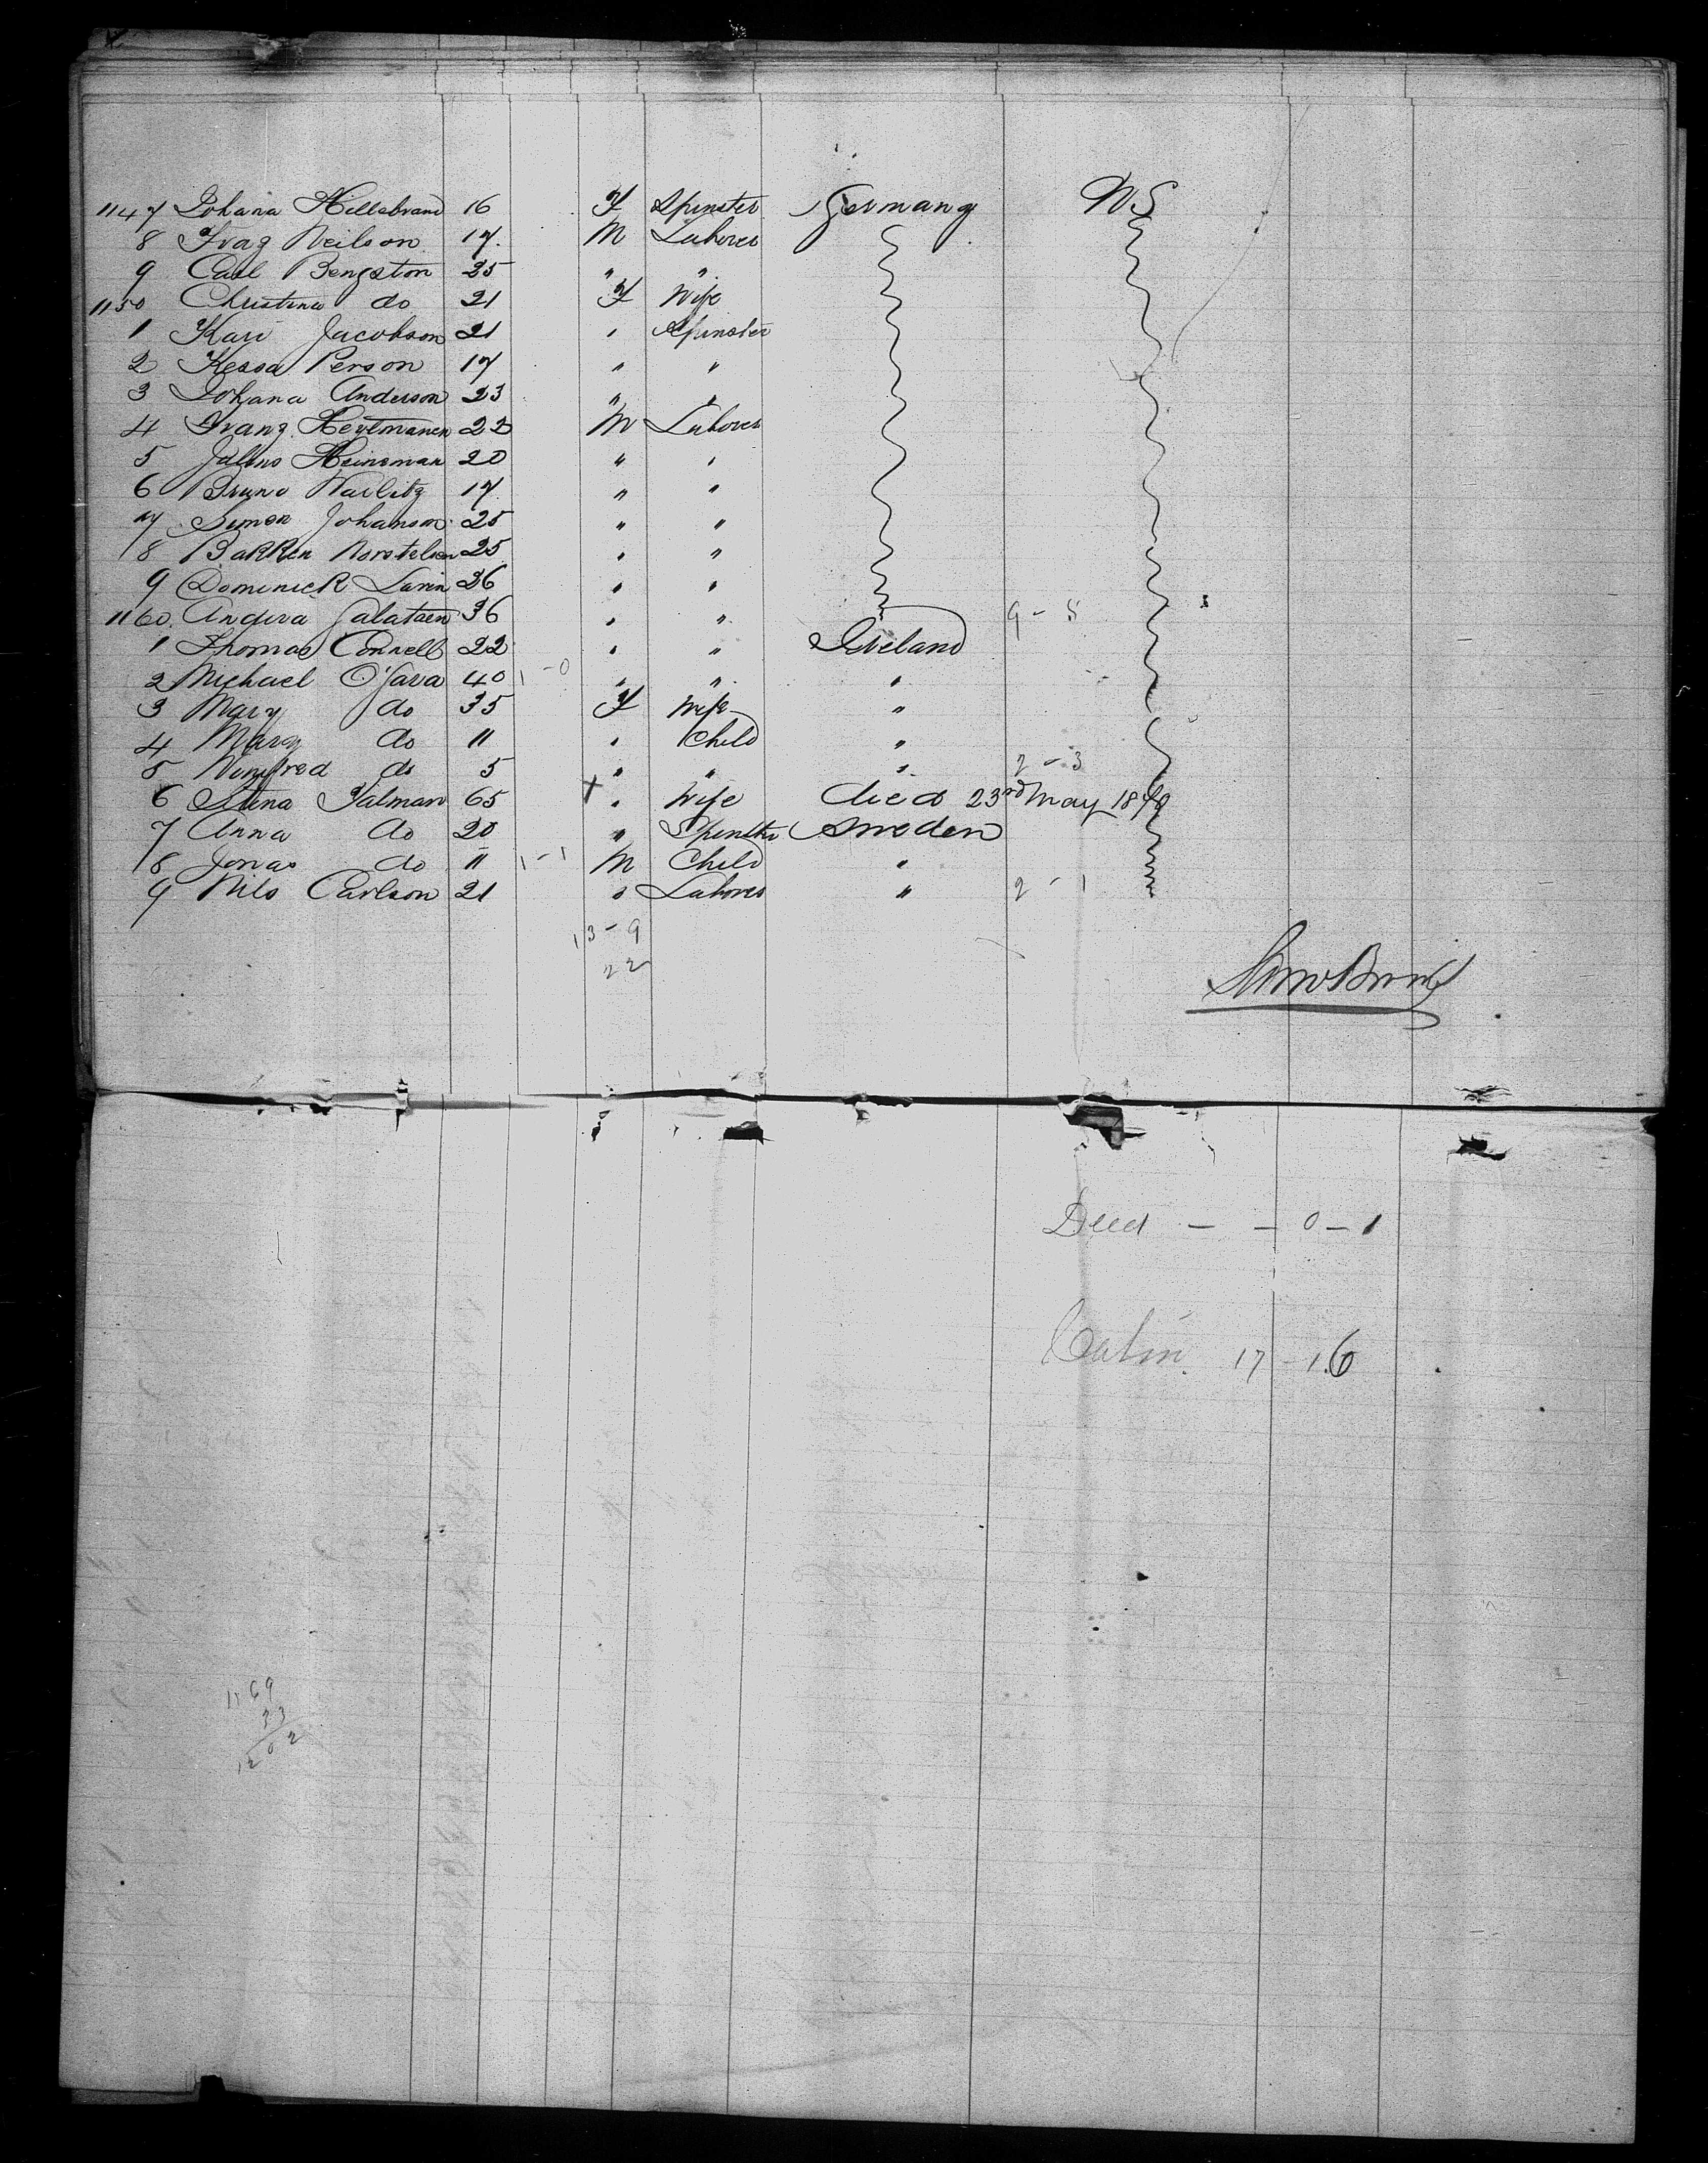 1147 Johana Hillebrand 16 F Spinster Germany U S
8 Neilson 17 M Laborer
9 Carl Bengston 25 " "
1150 Christina do 21 F Wife
1 Kari Jacobson 21 " Spinster
2 Kessa Person 17 " "
3 Johana Anderson 23 " "
4 Franz 22 M Laborer
5 Julius Heineman 20 " "
6 Bruno Warlitz 17 " "
7 Simon Johanson 25 " "
8 25 " "
9 Dominick Lavin 36 " "
1160 36 " " 9 - 5
1 Thomas Connell 22 " " Ireland
2 Michael O'Gara 40 1 - 0 " " "
3 Mary do 35 F Wife "
4 Mary do 11 " Child "
5 Winifred do 5 " " " 2 - 3
6 Stina Salman 65 + " Wife died 23rd May
7 Anna do 20 " Spinster Sweden
8 Jonas do 11 1 - 1 M Child "
9 Nils Carlson 21 " Laborer " 2 - 1
13 - 9
22
Died - - 0 - 1
Cabin 17 - 16
1169
33
1202